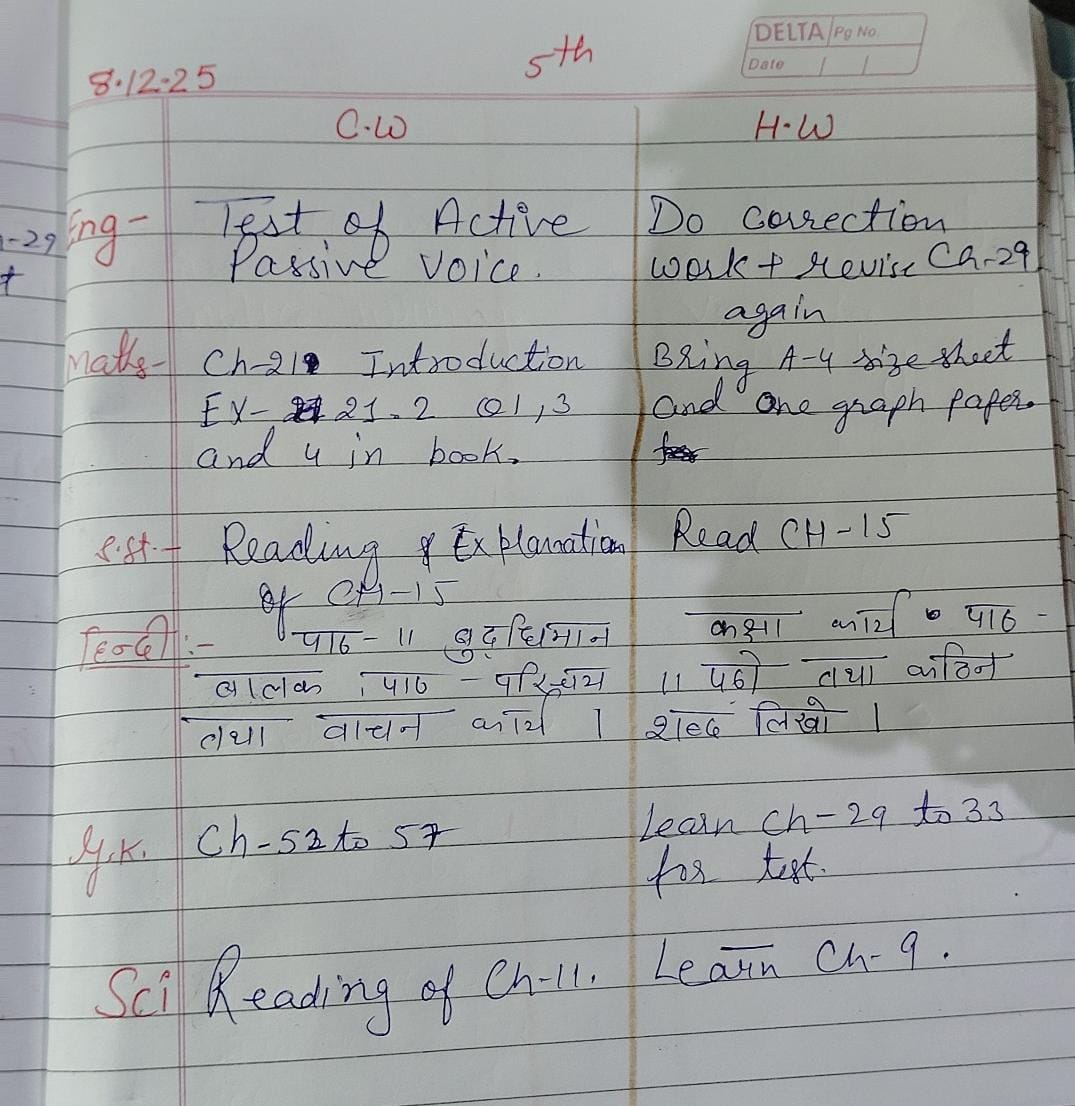 DELTA Pg No.
Date / /
5th
8.12.25
C.W H.W
Eng- Test of Active Do correction
Passive Voice. work + revise Ch-29
again
Maths- Ch-21 Introduction Bring A-4 size sheet
EX- 21.2 Q1,3 and One graph paper.
and 4 in book.
S.St.- Reading & Explanation Read CH-15
of CH-15
हिन्दी:- पाठ-11 बुद्धिमान कक्षा कार्य पाठ -
बालक, पाठ - परिचय 11 पढो तथा कठिन
तथा वाचन कार्य । शब्द लिखो ।
G.K. Ch-52 to 57 Learn Ch-29 to 33
for test.
Sci Reading of Ch-11. Learn Ch-9.
-29
+